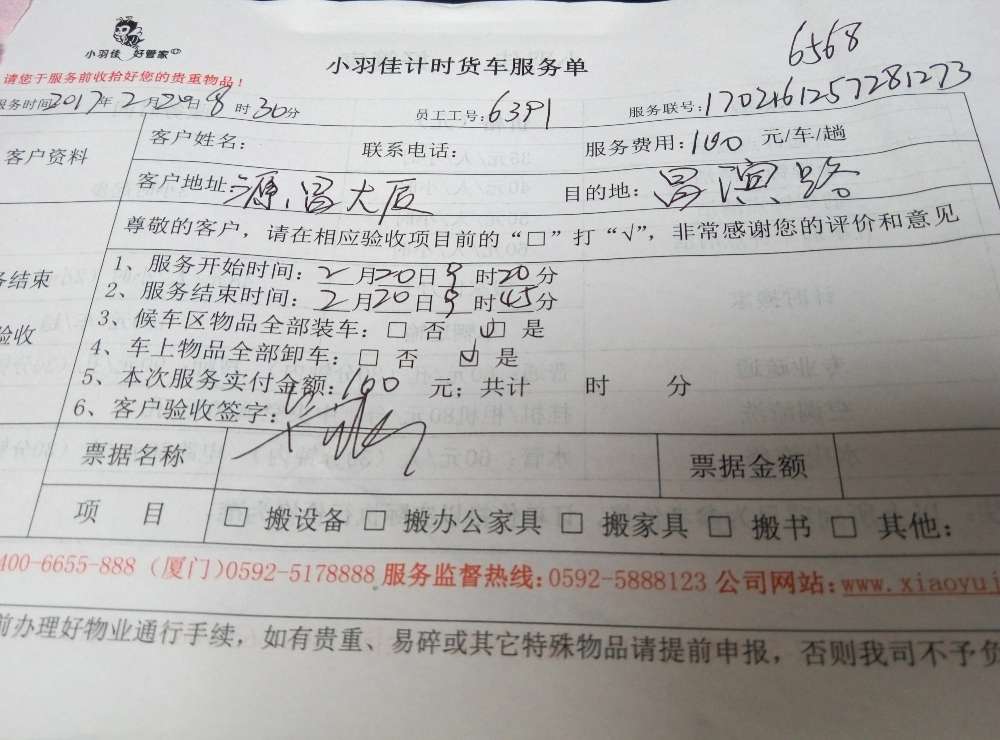 小羽佳 好管家
6568
小羽佳计时货车服务单
请您于服务前收拾好您的贵重物品！
服务时间2017年2月20日8时30分 员工工号:6391 服务联号:1702161257281273
客户资料
客户姓名: 联系电话: 服务费用:100 元/车/趟
客户地址:源昌大厦 目的地:昌滨路
尊敬的客户，请在相应验收项目前的“□”打“√”，非常感谢您的评价和意见
务结束
验收
1、服务开始时间: 2月20日9时20分
2、服务结束时间: 2月20日9时45分
3、候车区物品全部装车: □ 否 ☑ 是
4、车上物品全部卸车: □ 否 ☑ 是
5、本次服务实付金额:100 元; 共计 时 分
6、客户验收签字:
票据名称 票据金额
项 目 □ 搬设备 □ 搬办公家具 □ 搬家具 □ 搬书 □ 其他:
400-6655-888 (厦门)0592-5178888 服务监督热线:0592-5888123 公司网站:www.xiaoyuj
前办理好物业通行手续，如有贵重、易碎或其它特殊物品请提前申报，否则我司不予负